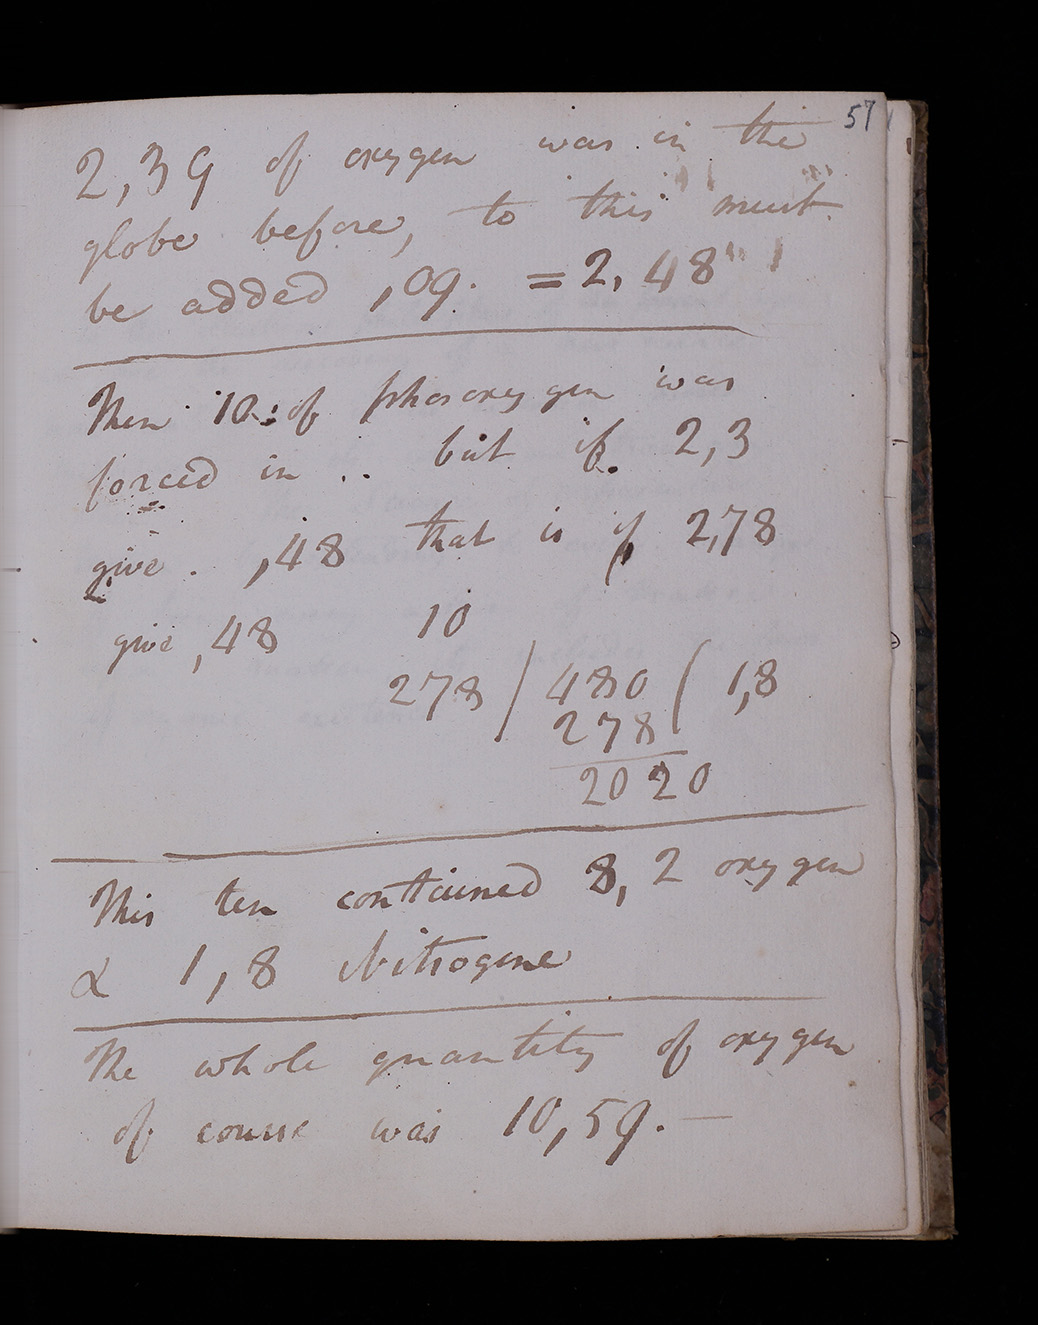 57
2,39 of oxygen was in the
globe before, to this must
be added ,09. = 2,48
Then 10 of phosoxygen was
forced in .. but if 2,3
give . ,48 that is if 2,78
give ,48 10
278 / 480 ( 1,8
278
2020
This ten contained 8,2 oxygen
& 1,8 Nitrogene
The whole quantity of oxygen
of course was 10,59. —